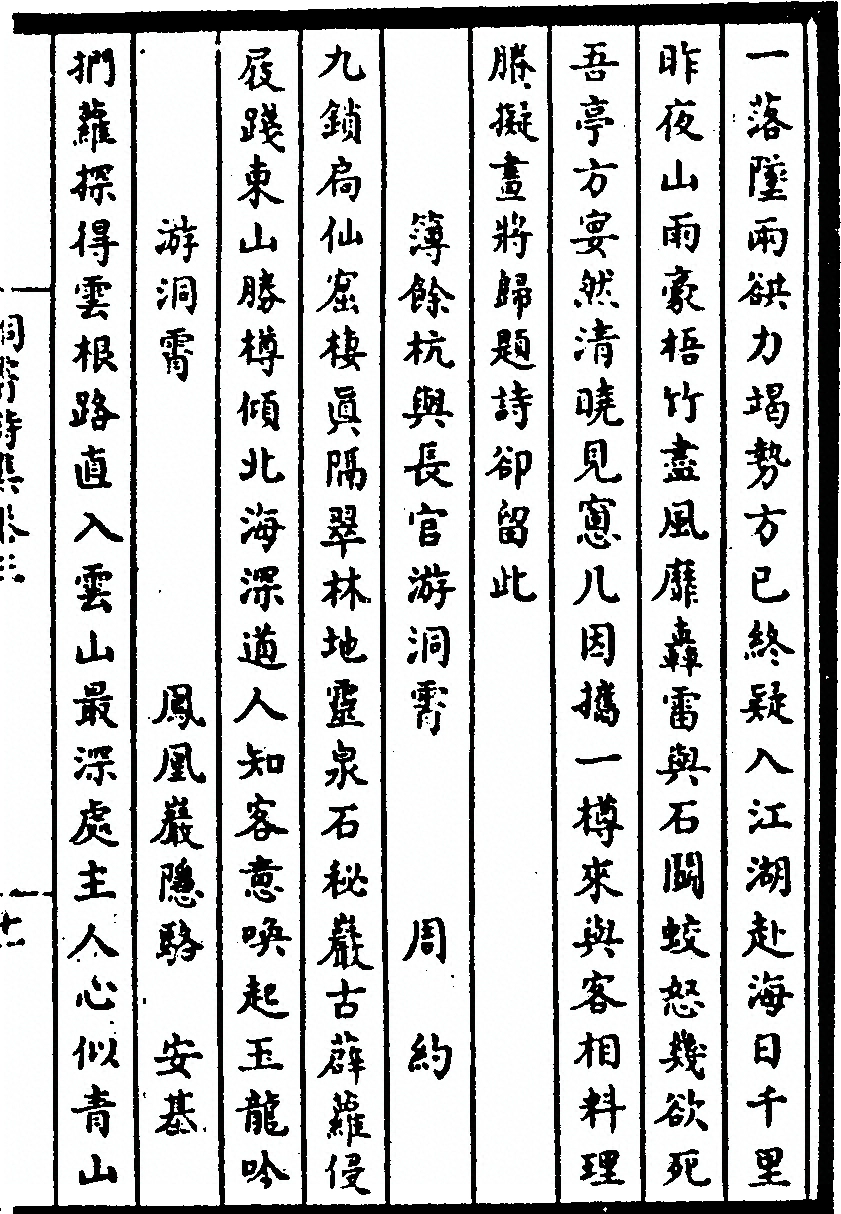 一落墜兩缺力竭勢方已終疑入江湖赴海日千里
昨夜山雨豪梧竹盡風靡轟雷與石鬭蛟怒幾欲死
吾亭方宴然清曉見窻几因攜一樽來與客相料理
勝擬畫將歸題詩卻留此
簿餘杭與長官游洞霄 周約
九鎖扃仙窟棲眞隔翠林地靈泉石秘巖古薜蘿侵
屐踐東山勝樽傾北海深道人知客意喚起玉龍吟
游洞霄 鳳凰巖隱駱 安基
捫蘿探得雲根路直入雲山最深處主人心似青山
洞霄詩集卷三 十一